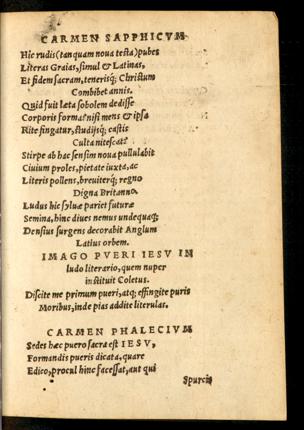 CARMEN SAPPHICVM
Hic rudis (tanquam noua testa) pubes
Literas Graias, simul & Latinas,
Et fidem sacram, tenerisq; Christum
Combibet annis.
Quid fuit læta sobolem dedisse
Corporis forma? nisi mens & ipsa
Rite fingatur, studijsq; castis
Culta nitescat?
Stirpe ab hac sensim noua pullulabit
Ciuium proles, pietate iuxta, ac
Literis pollens, breuiterq; regno
Digna Britanno.
Ludus hic syluæ pariet futuræ
Semina, hinc diues nemus undequaq;
Densius surgens decorabit Anglum
Latius orbem.
IMAGO PVERI IESV IN
ludo literario, quem nuper
instituit Coletus.
Discite me primum pueri, atq; effingite puris
Moribus, inde pias addite literulas.
CARMEN PHALECIVM
Sedes hæc puero sacra est IESV,
Formandis pueris dicata, quare
Edico, procul hinc facessat, aut qui
Spurcis